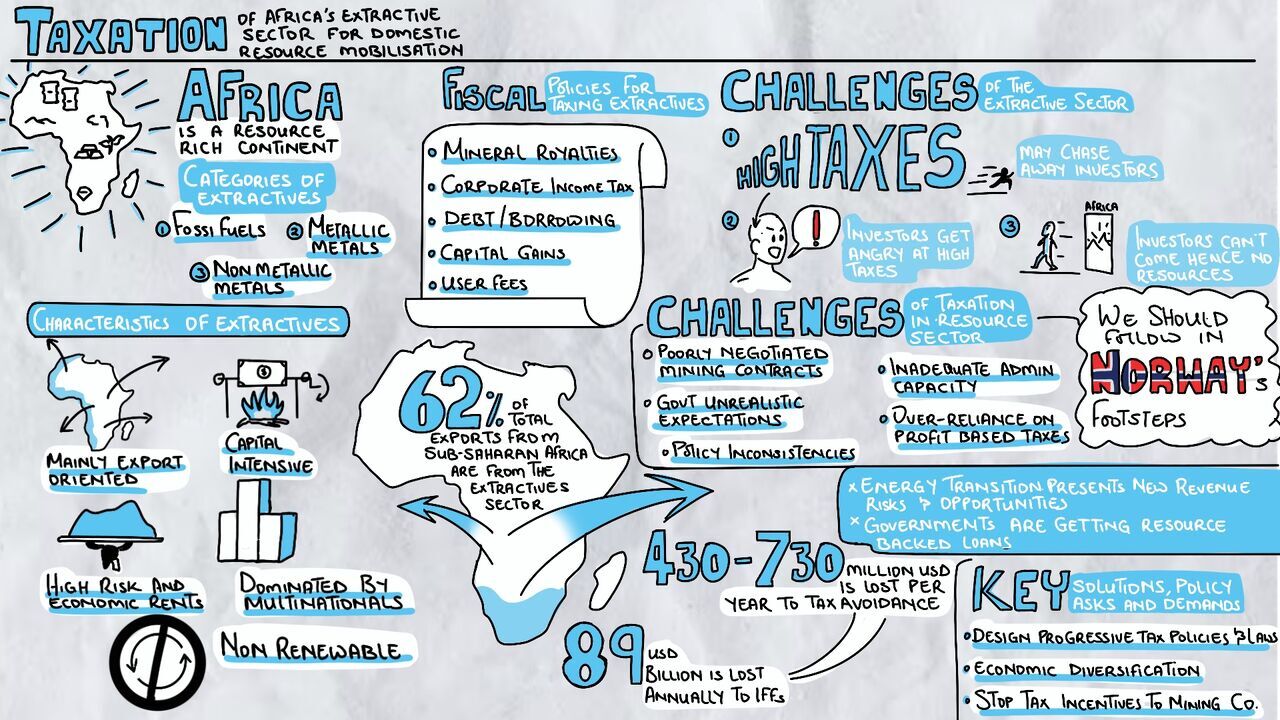 TAXATION
OF AFRICA'S EXTRACTIVE
SECTOR FOR DOMESTIC
RESOURCE MOBILISATION
AFRICA
IS A RESOURCE
RICH CONTINENT
CATEGORIES OF
EXTRACTIVES
1 FOSSIFUELS
2 METALLIC
METALS
3 NON METALLIC
METALS
CHARACTERISTICS OF EXTRACTIVES
MAINLY EXPORT
ORIENTED
$
CAPITAL
INTENSIVE
HIGH RISK AND
ECONOMIC RENTS
DOMINATED BY
MULTINATIONALS
NON RENEWABLE
FISCAL
POLICIES FOR
TAXING EXTRACTIVES
• MINERAL ROYALTIES
• CORPORATE INCOME TAX
• DEBT/BORROWING
• CAPITAL GAINS
• USER FEES
62% OF
TOTAL
EXPORTS FROM
SUB-SAHARAN AFRICA
ARE FROM THE
EXTRACTIVES
SECTOR
430-730
MILLION USD
IS LOST PER
YEAR TO TAX AVOIDANCE
89 USD
BILLION IS LOST
ANNUALLY TO IFFs
CHALLENGES
OF THE
EXTRACTIVE SECTOR
1
HIGH TAXES
MAY CHASE
AWAY INVESTORS
2
!
INVESTORS GET
ANGRY AT HIGH
TAXES
3
AFRICA
INVESTORS CAN'T
COME HENCE NO
RESOURCES
CHALLENGES
OF TAXATION
IN RESOURCE
SECTOR
• POORLY NEGOTIATED
MINING CONTRACTS
• GOVT UNREALISTIC
EXPECTATIONS
• POLICY INCONSISTENCIES
• INADEQUATE ADMIN
CAPACITY
• OVER-RELIANCE ON
PROFIT BASED TAXES
WE SHOULD
FOLLOW IN
NORWAY'S
FOOTSTEPS
x ENERGY TRANSITION PRESENTS NEW REVENUE
RISKS & OPPORTUNITIES
x GOVERNMENTS ARE GETTING RESOURCE
BACKED LOANS
KEY
SOLUTIONS, POLICY
ASKS AND DEMANDS
• DESIGN PROGRESSIVE TAX POLICIES & LAWS
• ECONOMIC DIVERSIFICATION
• STOP TAX INCENTIVES TO MINING CO.